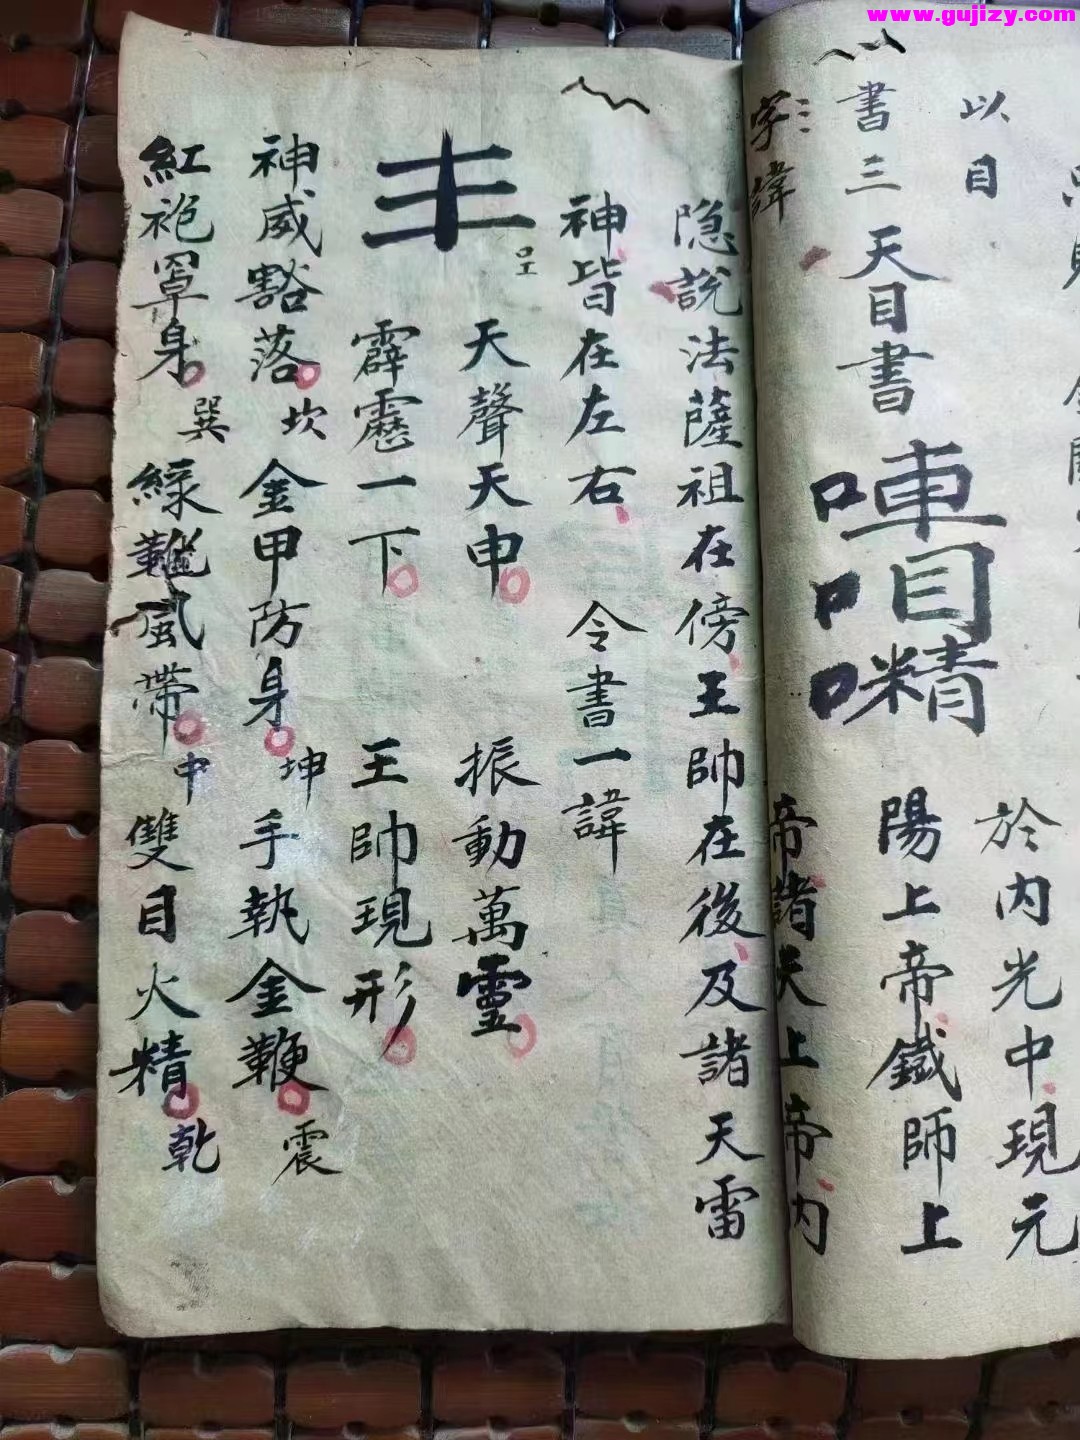 www.gujizy.com
以目
於内光中現元
書三天目書
𠳹
目
精
陽上帝鐵師上
字諱
帝諸天上帝内
隐說法薩祖在傍王帥在後及諸天雷
神皆在左右 令書一諱
天聲天申 振動萬靈
霹靂一下 王帥現形
神威豁落 坎 金甲防身 坤 手執金鞭 震
紅袍罩身 巽 緑靴風帶 中 雙目火精 乾